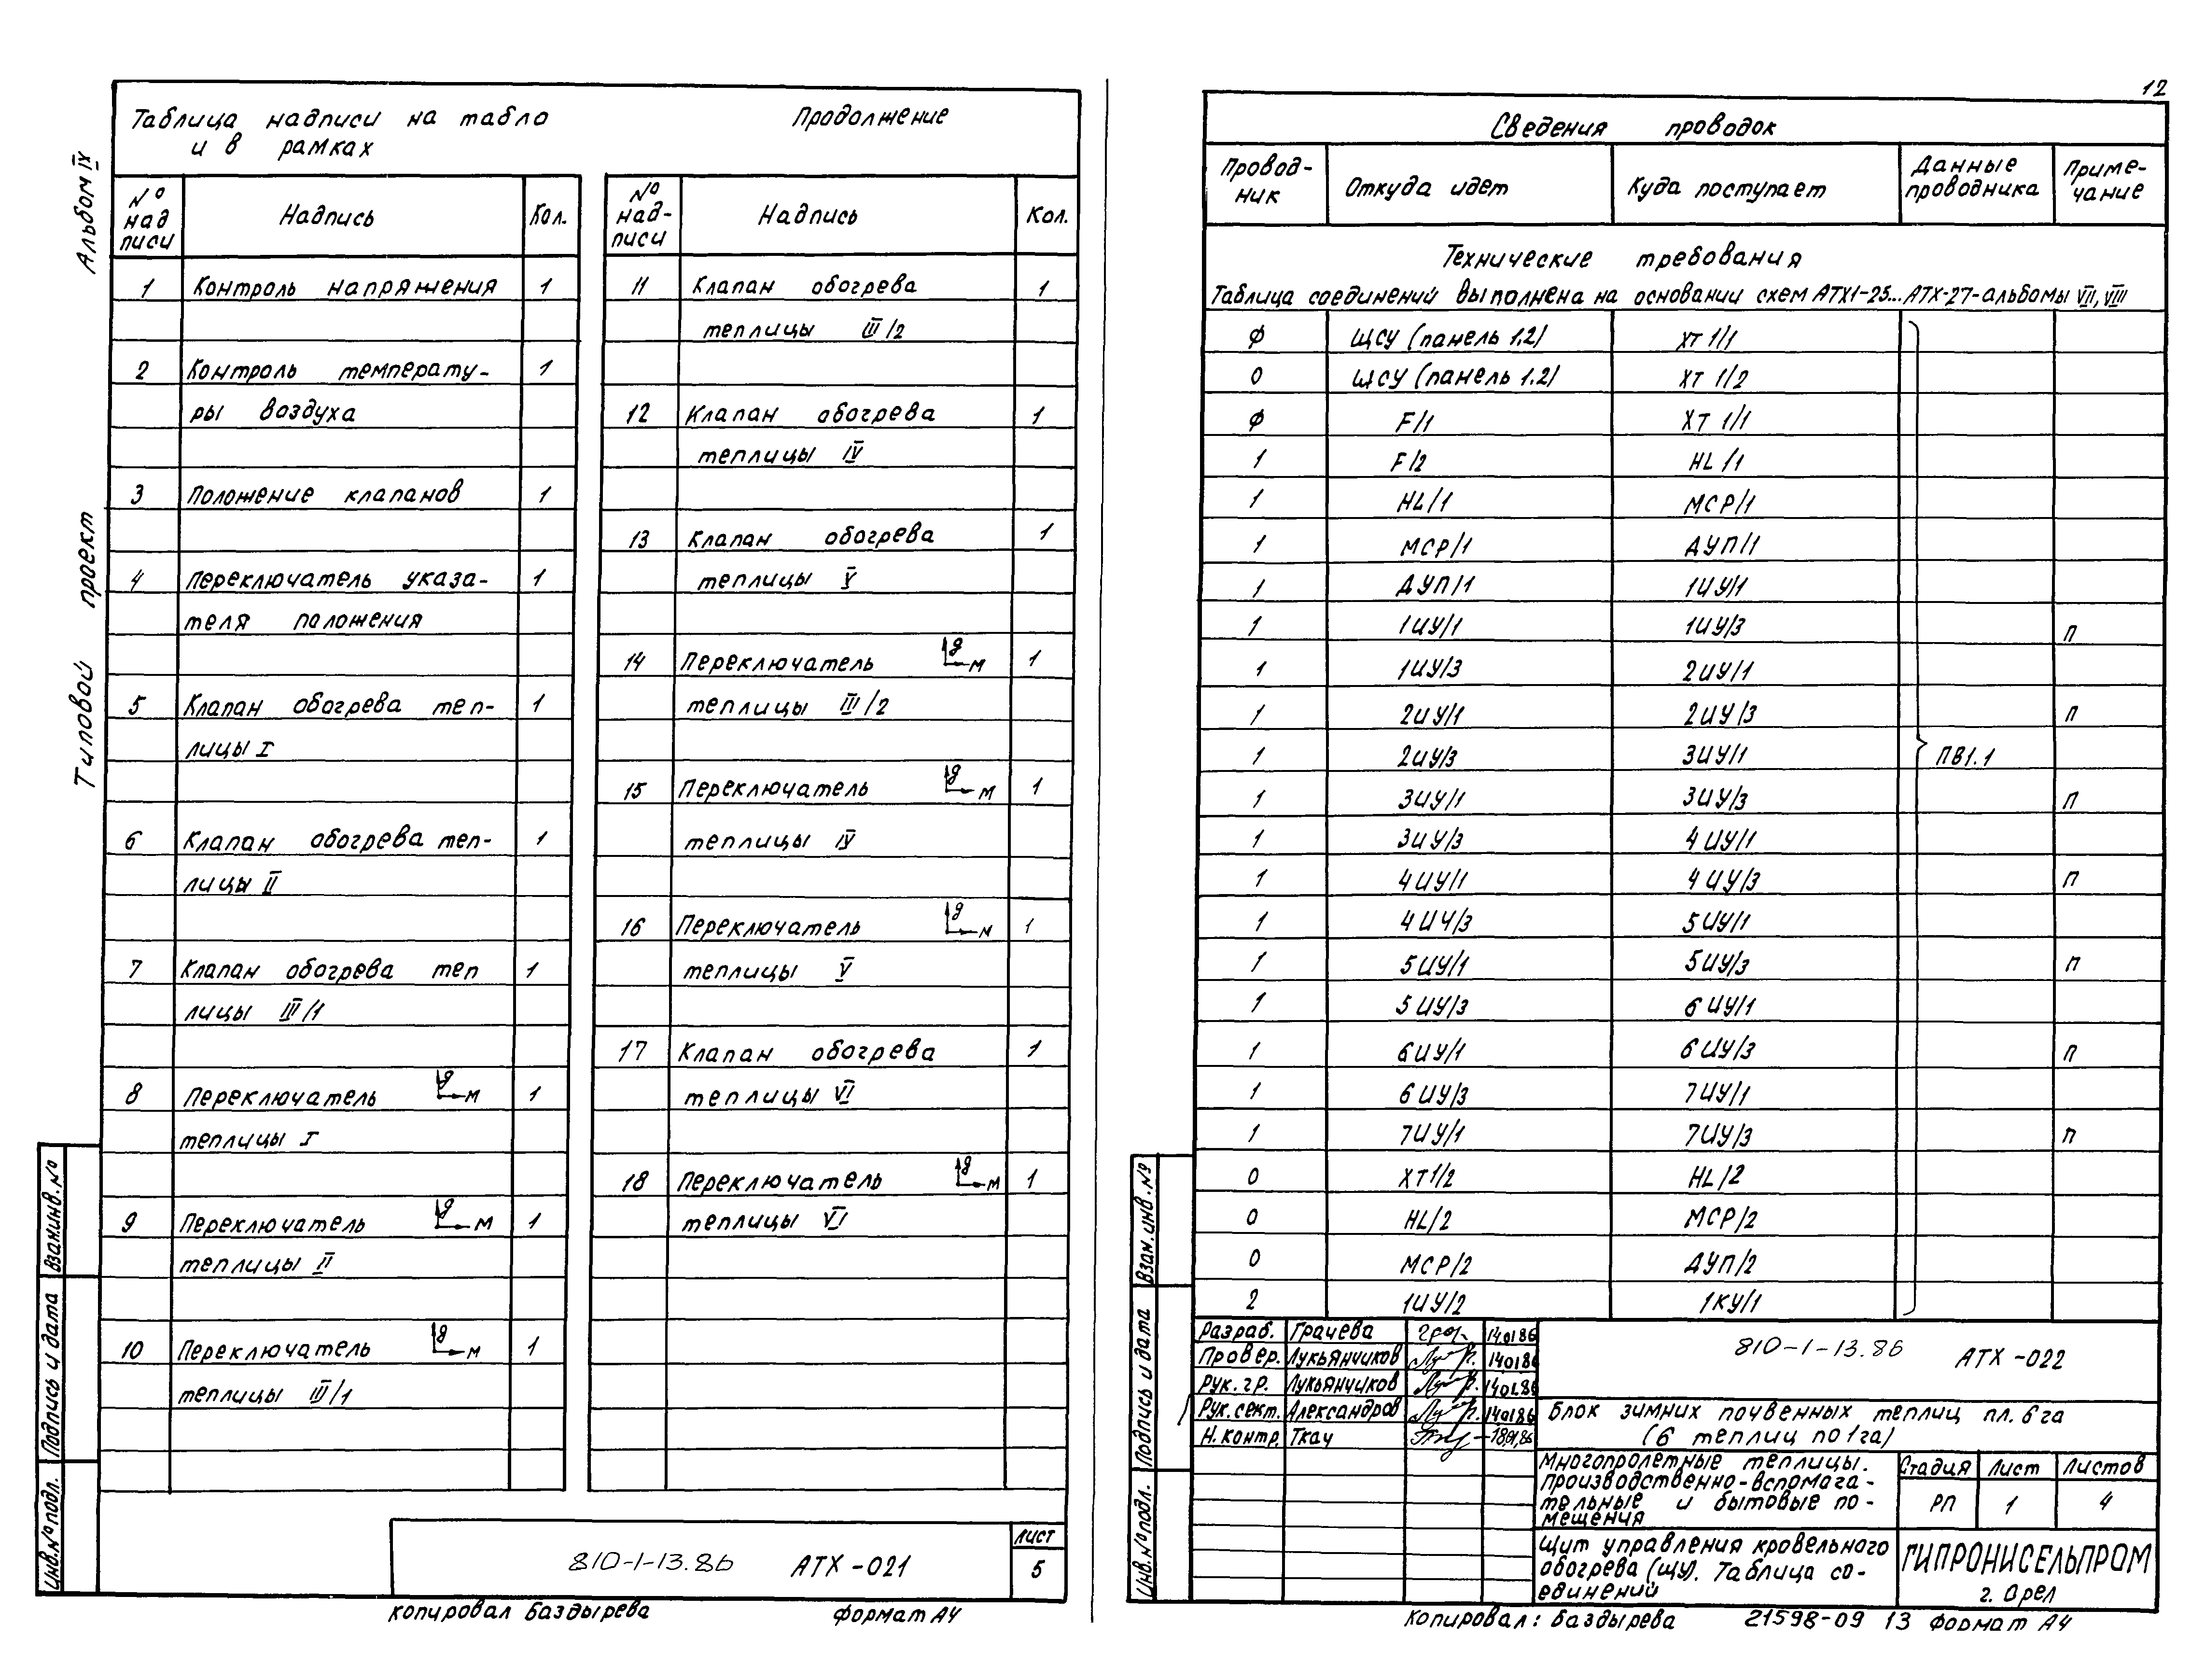 12
Альбом IX
Типовой проект
Таблица надписи на табло
и в рамках
Продолжение
№ над писи | Надпись | Кол.
1 | Контроль напряжения | 1
2 | Контроль температу- | 1
ры воздуха
3 | Положение клапанов | 1
4 | Переключатель указа- | 1
теля положения
5 | Клапан обогрева теп- | 1
лицы I
6 | Клапан обогрева теп- | 1
лицы II
7 | Клапан обогрева теп | 1
лицы III/1
8 | Переключатель д М | 1
теплицы I
9 | Переключатель д М | 1
теплицы II
10 | Переключатель д М | 1
теплицы III/1
№ над- писи | Надпись | Кол.
11 | Клапан обогрева | 1
теплицы III/2
12 | Клапан обогрева | 1
теплицы IV
13 | Клапан обогрева | 1
теплицы V
14 | Переключатель д М | 1
теплицы III/2
15 | Переключатель д М | 1
теплицы IV
16 | Переключатель д М | 1
теплицы V
17 | Клапан обогрева | 1
теплицы VI
18 | Переключатель д М | 1
теплицы VI
Взам.инв.№
Подпись и дата
Инв.№ подл.
810-1-13.86 АТХ-021
Лист
5
Копировал Баздырева формат А4
Сведения проводок
Провод- ник | Откуда идет | Куда поступает | Данные проводника | Приме- чание
Технические требования
Таблица соединений выполнена на основании схем АТХ1-25...АТХ-27-альбомы VII, VIII
ф | ЩСУ (панель 1.2) | ХТ 1/1
0 | ЩСУ (панель 1.2) | ХТ 1/2
ф | F/1 | ХТ 1/1
1 | F/2 | HL/1
1 | HL/1 | МСР/1
1 | МСР/1 | ДУП/1
1 | ДУП/1 | 1ИУ/1
1 | 1ИУ/1 | 1ИУ/3 | п
1 | 1ИУ/3 | 2ИУ/1
1 | 2ИУ/1 | 2ИУ/3 | п
1 | 2ИУ/3 | 3ИУ/1 | ПВ1.1
1 | 3ИУ/1 | 3ИУ/3 | п
1 | 3ИУ/3 | 4ИУ/1
1 | 4ИУ/1 | 4ИУ/3 | п
1 | 4ИУ/3 | 5ИУ/1
1 | 5ИУ/1 | 5ИУ/3 | п
1 | 5ИУ/3 | 6ИУ/1
1 | 6ИУ/1 | 6ИУ/3 | п
1 | 6ИУ/3 | 7ИУ/1
1 | 7ИУ/1 | 7ИУ/3 | п
0 | ХТ1/2 | HL/2
0 | HL/2 | МСР/2
0 | МСР/2 | ДУП/2
2 | 1ИУ/2 | 1КУ/1
Взам.инв.№
Подпись и дата
Инв.№ подл.
Разраб. Грачева 140186
Провер. Лукьянчиков 140186
Рук.гр. Лукьянчиков 140186
Рук.сект. Александров 140186
Н.контр. Ткач 180186
810-1-13.86 АТХ-022
Блок зимних почвенных теплиц пл. 6га
(6 теплиц по 1га)
Многопролетные теплицы.
Производственно-вспомога-
тельные и бытовые по-
мещения
Стадия | Лист | Листов
РП | 1 | 4
Щит управления кровельного
обогрева (ЩУ). Таблица со-
единений
ГИПРОНИСЕЛЬПРОМ
г. Орел
Копировал: Баздырева 21598-09 13 Формат А4